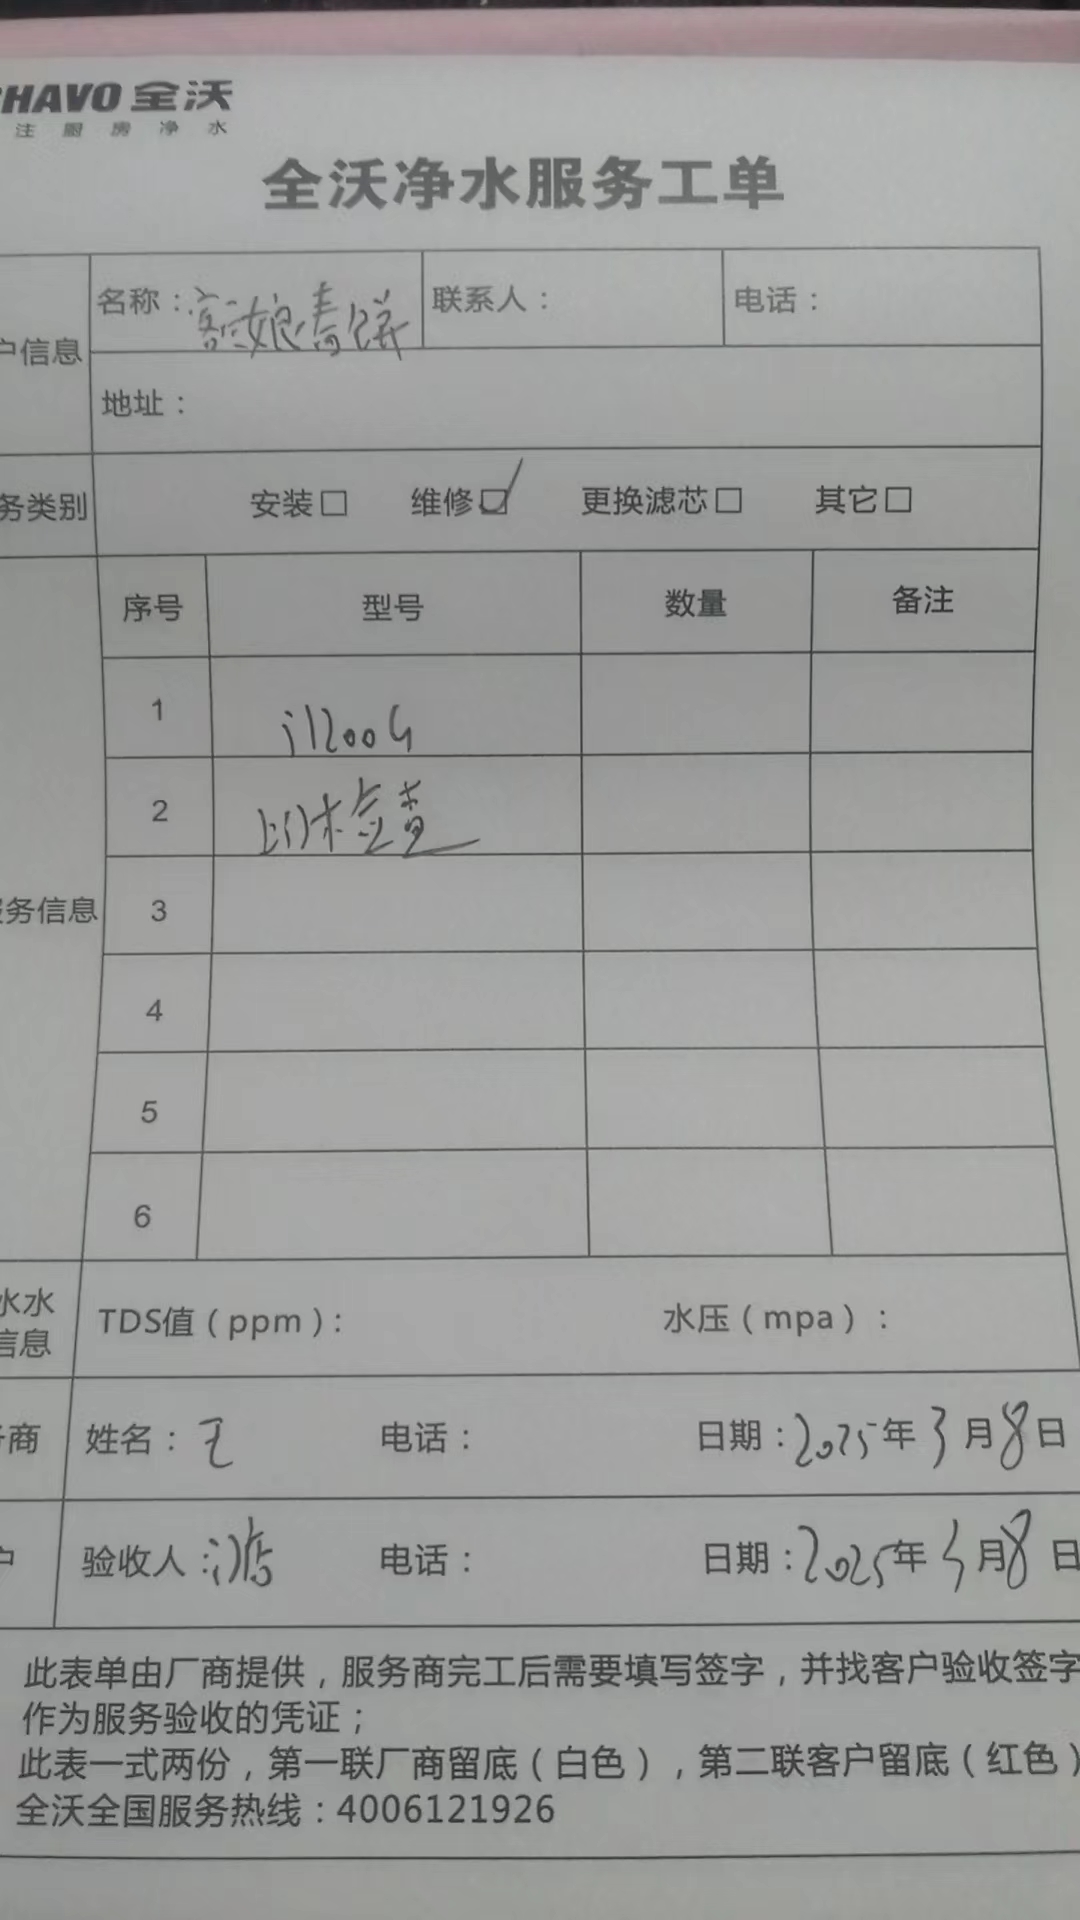 HAVO 全沃
注厨房净水
全沃净水服务工单
户信息
名称：额娘春饼
联系人：
电话：
地址：
务类别
安装□ 维修☑ 更换滤芯□ 其它□
序号 型号 数量 备注
1 i1200G
2 上门检查
服务信息 3
4
5
6
水水
信息
TDS值（ppm）：
水压（mpa）：
商
姓名：王 电话： 日期：2025年3月8日
户
验收人： 电话： 日期：2025年3月8日
此表单由厂商提供，服务商完工后需要填写签字，并找客户验收签字
作为服务验收的凭证；
此表一式两份，第一联厂商留底（白色），第二联客户留底（红色）
全沃全国服务热线：4006121926